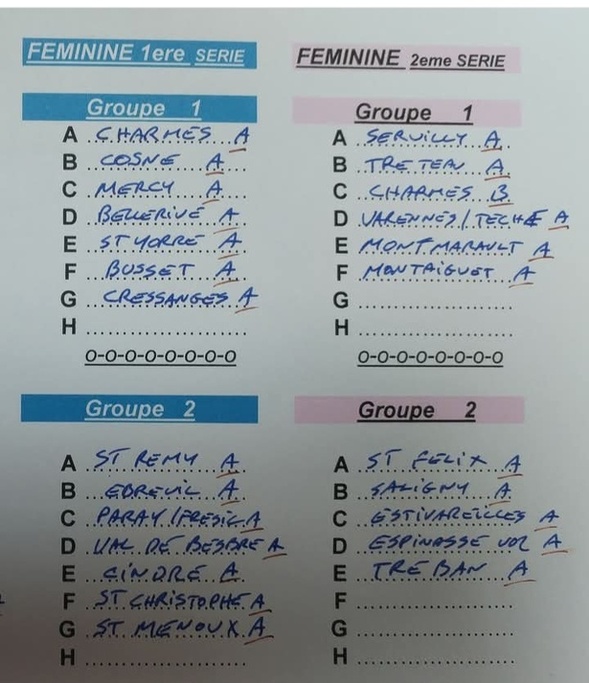 FEMININE 1ere SERIE
Groupe 1
A CHARMES A
B COSNE A
C MERCY A
D BELLERIVE A
E ST YORRE A
F BUSSET A
G CRESSANGES A
H
O-O-O-O-O-O-O-O
Groupe 2
A ST REMY A
B EBREUIL A
C PARAY/FRESIL A
D VAL DE BESBRE A
E CINDRE A
F ST CHRISTOPHE A
G ST MENOUX A
H
FEMININE 2eme SERIE
Groupe 1
A SERVILLY A
B TRETEAU A
C CHARMES B
D VARENNES/TECHE A
E MONTMARAULT A
F MONTAIGUET A
G
H
O-O-O-O-O-O-O-O
Groupe 2
A ST FELIX A
B SALIGNY A
C ESTIVAREILLES A
D ESPINASSE VOZ A
E TREBAN A
F
G
H